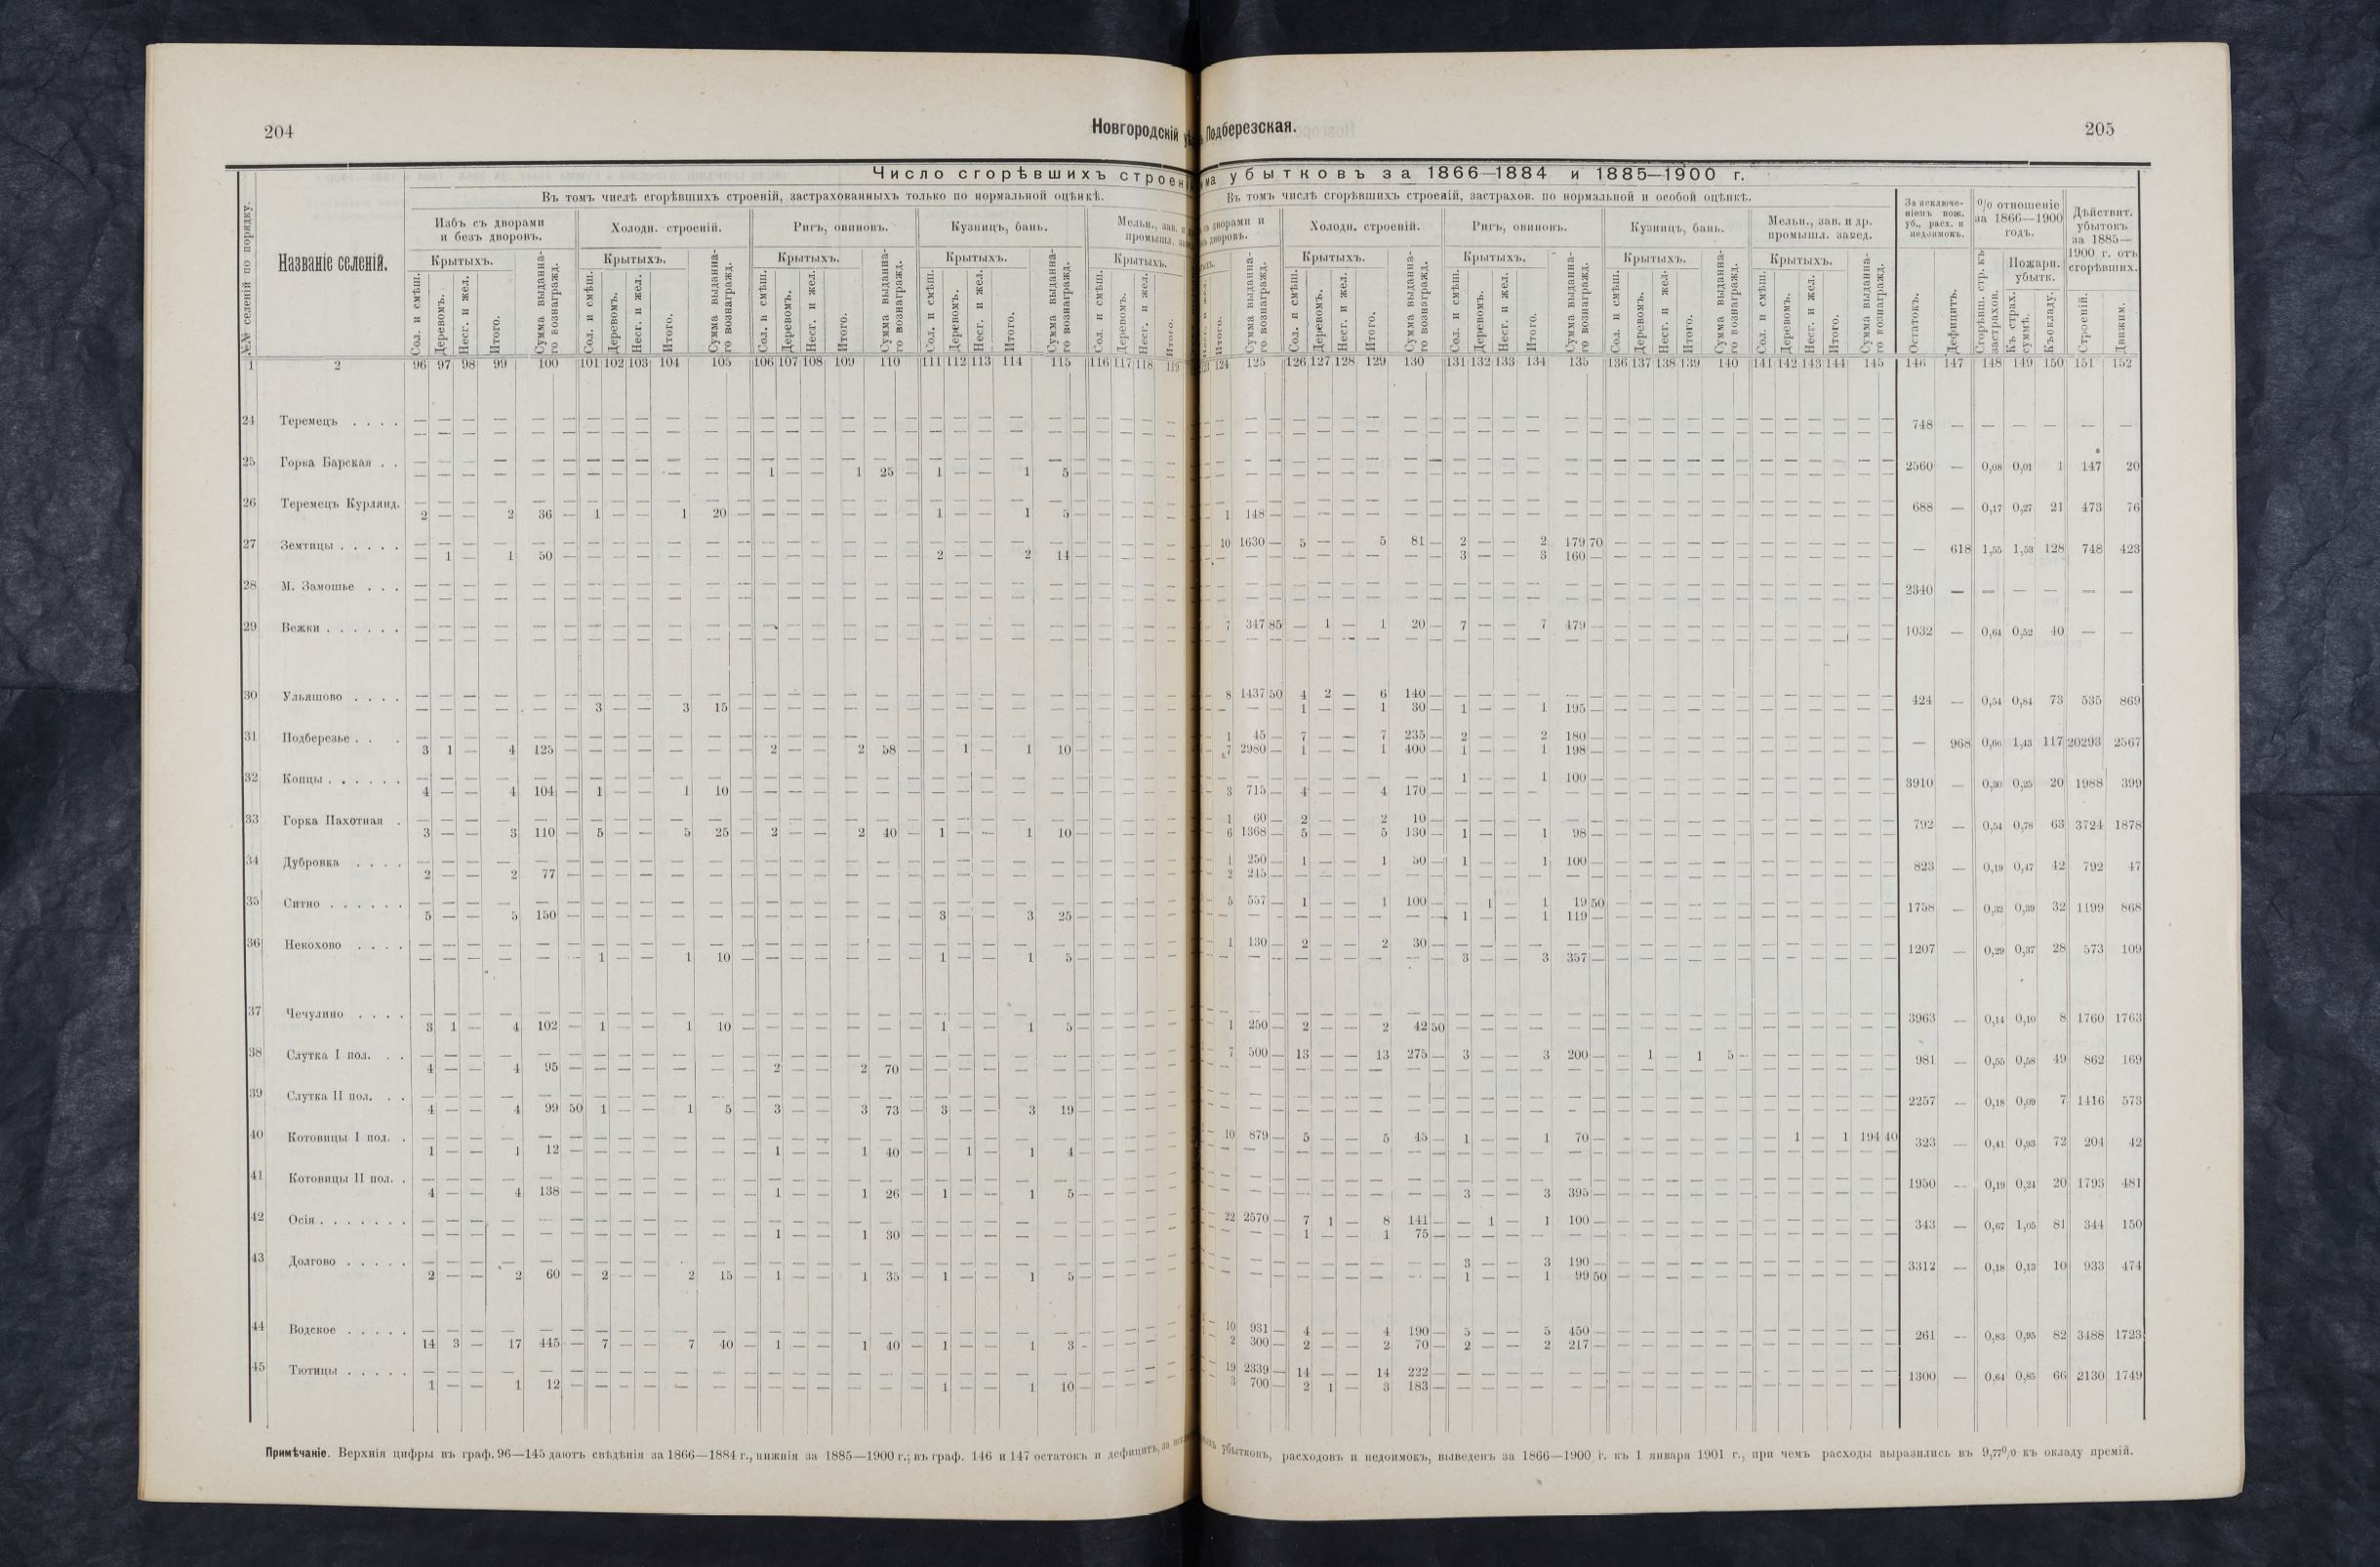 204
Новгородскій
Подберезская.
205
Число сгорѣвшихъ строен
убытковъ за 1866—1884 и 1885—1900 г.
№№ селеній по порядку.
Названіе селеній.
Въ томъ числѣ сгорѣвшихъ строеній, застрахованныхъ только по нормальной оцѣнкѣ.
Въ томъ числѣ сгорѣвшихъ строеній, застрахов. по нормальной и особой оцѣнкѣ.
Избъ съ дворами и безъ дворовъ.
Холодн. строеній.
Ригъ, овиновъ.
Кузницъ, бань.
Холодн. строеній.
Ригъ, овиновъ.
Кузницъ, бань.
Мельн., зав. и др. промышл. завед.
За исключе-
ніемъ пож.
уб., расх. и
недоимокъ.
0/0 отношеніе
за 1866—1900
годъ.
Дѣйствит.
убытокъ
за 1885—
1900 г. отъ
сгорѣвшихъ.
Крытыхъ. Сол. и смѣш. Деревомъ. Несг. и жел. Итого. Сумма выданна-го вознагражд.
Остатокъ. Дефицитъ. Сгорѣвш. стр. къ застрахов. Пожарн. убытк. Къ страх. суммѣ. Къ окладу. Строеній. Движим.
1 2 96 97 98 99 100 101 102 103 104 105 106 107 108 109 110 111 112 113 114 115 116 117 118 119
124 125 126 127 128 129 130 131 132 133 134 135 136 137 138 139 140 141 142 143 144 145 146 147 148 149 150 151 152
24 Теремецъ . . . . 748 — — — — — —
25 Горка Барская . . 1 — — 1 25 — 1 — — 1 5 — 2560 — 0,08 0,01 1 147 20
26 Теремецъ Курлянд. 2 — — 2 36 — 1 — — 1 20 — 1 — — 1 5 — 1 148 — 688 — 0,17 0,27 21 473 76
27 Земтицы . . . . . 10 1630 — 5 — — 5 81 — 2 — — 2 179 70
— 1 — 1 50 — 2 — — 2 14 — 3 — — 3 160 — — 618 1,55 1,53 128 748 423
28 М. Замошье . . . 2340 — — — — — —
29 Вежки . . . . . . 7 347 85 — 1 — 1 20 — 7 — — 7 479 — 1032 — 0,64 0,52 40 — —
30 Ульяшово . . . . 8 1437 50 4 2 — 6 140 —
3 — — 3 15 — 1 — — 1 30 — 1 — — 1 195 — 424 — 0,54 0,84 73 535 869
31 Подберезье . . . 1 45 — 7 — — 7 235 — 2 — — 2 180 —
3 1 — 4 125 — 2 — — 2 58 — — 1 — 1 10 — 7 2980 — 1 — — 1 400 — 1 — — 1 198 — — 968 0,66 1,43 117 20293 2567
32 Концы . . . . . . 1 — — 1 100 —
4 — — 4 104 — 1 — — 1 10 — 3 715 — 4 — — 4 170 — 3910 — 0,30 0,25 20 1988 399
33 Горка Пахотная . 1 60 — 2 — — 2 10 —
3 — — 3 110 — 5 — — 5 25 — 2 — — 2 40 — 1 — — 1 10 — 6 1368 — 5 — — 5 130 — 1 — — 1 98 — 792 — 0,54 0,78 63 3724 1878
34 Дубровка . . . . 1 250 — 1 — — 1 50 — 1 — — 1 100 —
2 — — 2 77 — 2 245 — 823 — 0,19 0,47 42 792 47
35 Ситно . . . . . . 5 557 — 1 — — 1 100 — — 1 — 1 19 50
5 — — 5 150 — 3 — — 3 25 — 1 — — 1 119 — 1758 — 0,32 0,39 32 1199 868
36 Некохово . . . . 1 130 — 2 — — 2 30 —
1 — — 1 10 — 1 — — 1 5 — 3 — — 3 357 — 1207 — 0,29 0,37 28 573 109
37 Чечулино . . . .
3 1 — 4 102 — 1 — — 1 10 — 1 — — 1 5 — 1 250 — 2 — — 2 42 50 3963 — 0,14 0,10 8 1760 1763
38 Слутка I пол. . . 7 500 — 13 — — 13 275 — 3 — — 3 200 — — 1 — 1 5 —
4 — — 4 95 — 2 — — 2 70 — 981 — 0,55 0,58 49 862 169
39 Слутка II пол. . .
4 — — 4 99 50 1 — — 1 5 — 3 — — 3 73 — 3 — — 3 19 — 2257 — 0,18 0,09 7 1416 573
40 Котовицы I пол. . 10 879 — 5 — — 5 45 — 1 — — 1 70 — — 1 — 1 194 40
1 — — 1 12 — 1 — — 1 40 — — 1 — 1 4 — 323 — 0,41 0,93 72 204 42
41 Котовицы II пол. .
4 — — 4 138 — 1 — — 1 26 — 1 — — 1 5 — 3 — — 3 395 — 1950 — 0,19 0,24 20 1793 481
42 Осія . . . . . . . 22 2570 — 7 1 — 8 141 — — 1 — 1 100 —
1 — — 1 30 — 1 — — 1 75 — 343 — 0,67 1,05 81 344 150
43 Долгово . . . . . 3 — — 3 190 —
2 — — 2 60 — 2 — — 2 15 — 1 — — 1 35 — 1 — — 1 5 — 1 — — 1 99 50 3312 — 0,18 0,13 10 933 474
44 Водское . . . . . 10 931 — 4 — — 4 190 — 5 — — 5 450 —
14 3 — 17 445 — 7 — — 7 40 — 1 — — 1 40 — 1 — — 1 3 — 2 300 — 2 — — 2 70 — 2 — — 2 217 — 261 — 0,83 0,95 82 3488 1723
45 Тютицы . . . . . 19 2339 — 14 — — 14 222 —
1 — — 1 12 — 1 — — 1 10 — 3 700 — 2 1 — 3 183 — 1300 — 0,64 0,85 66 2130 1749
Примѣчаніе. Верхнія цифры въ граф. 96—145 даютъ свѣдѣнія за 1866—1884 г., нижнія за 1885—1900 г.; въ граф. 146 и 147 остатокъ и дефицитъ, за убытковъ, расходовъ и недоимокъ, выведенъ за 1866—1900 г. къ 1 января 1901 г., при чемъ расходы выразились въ 9,77% къ окладу премій.